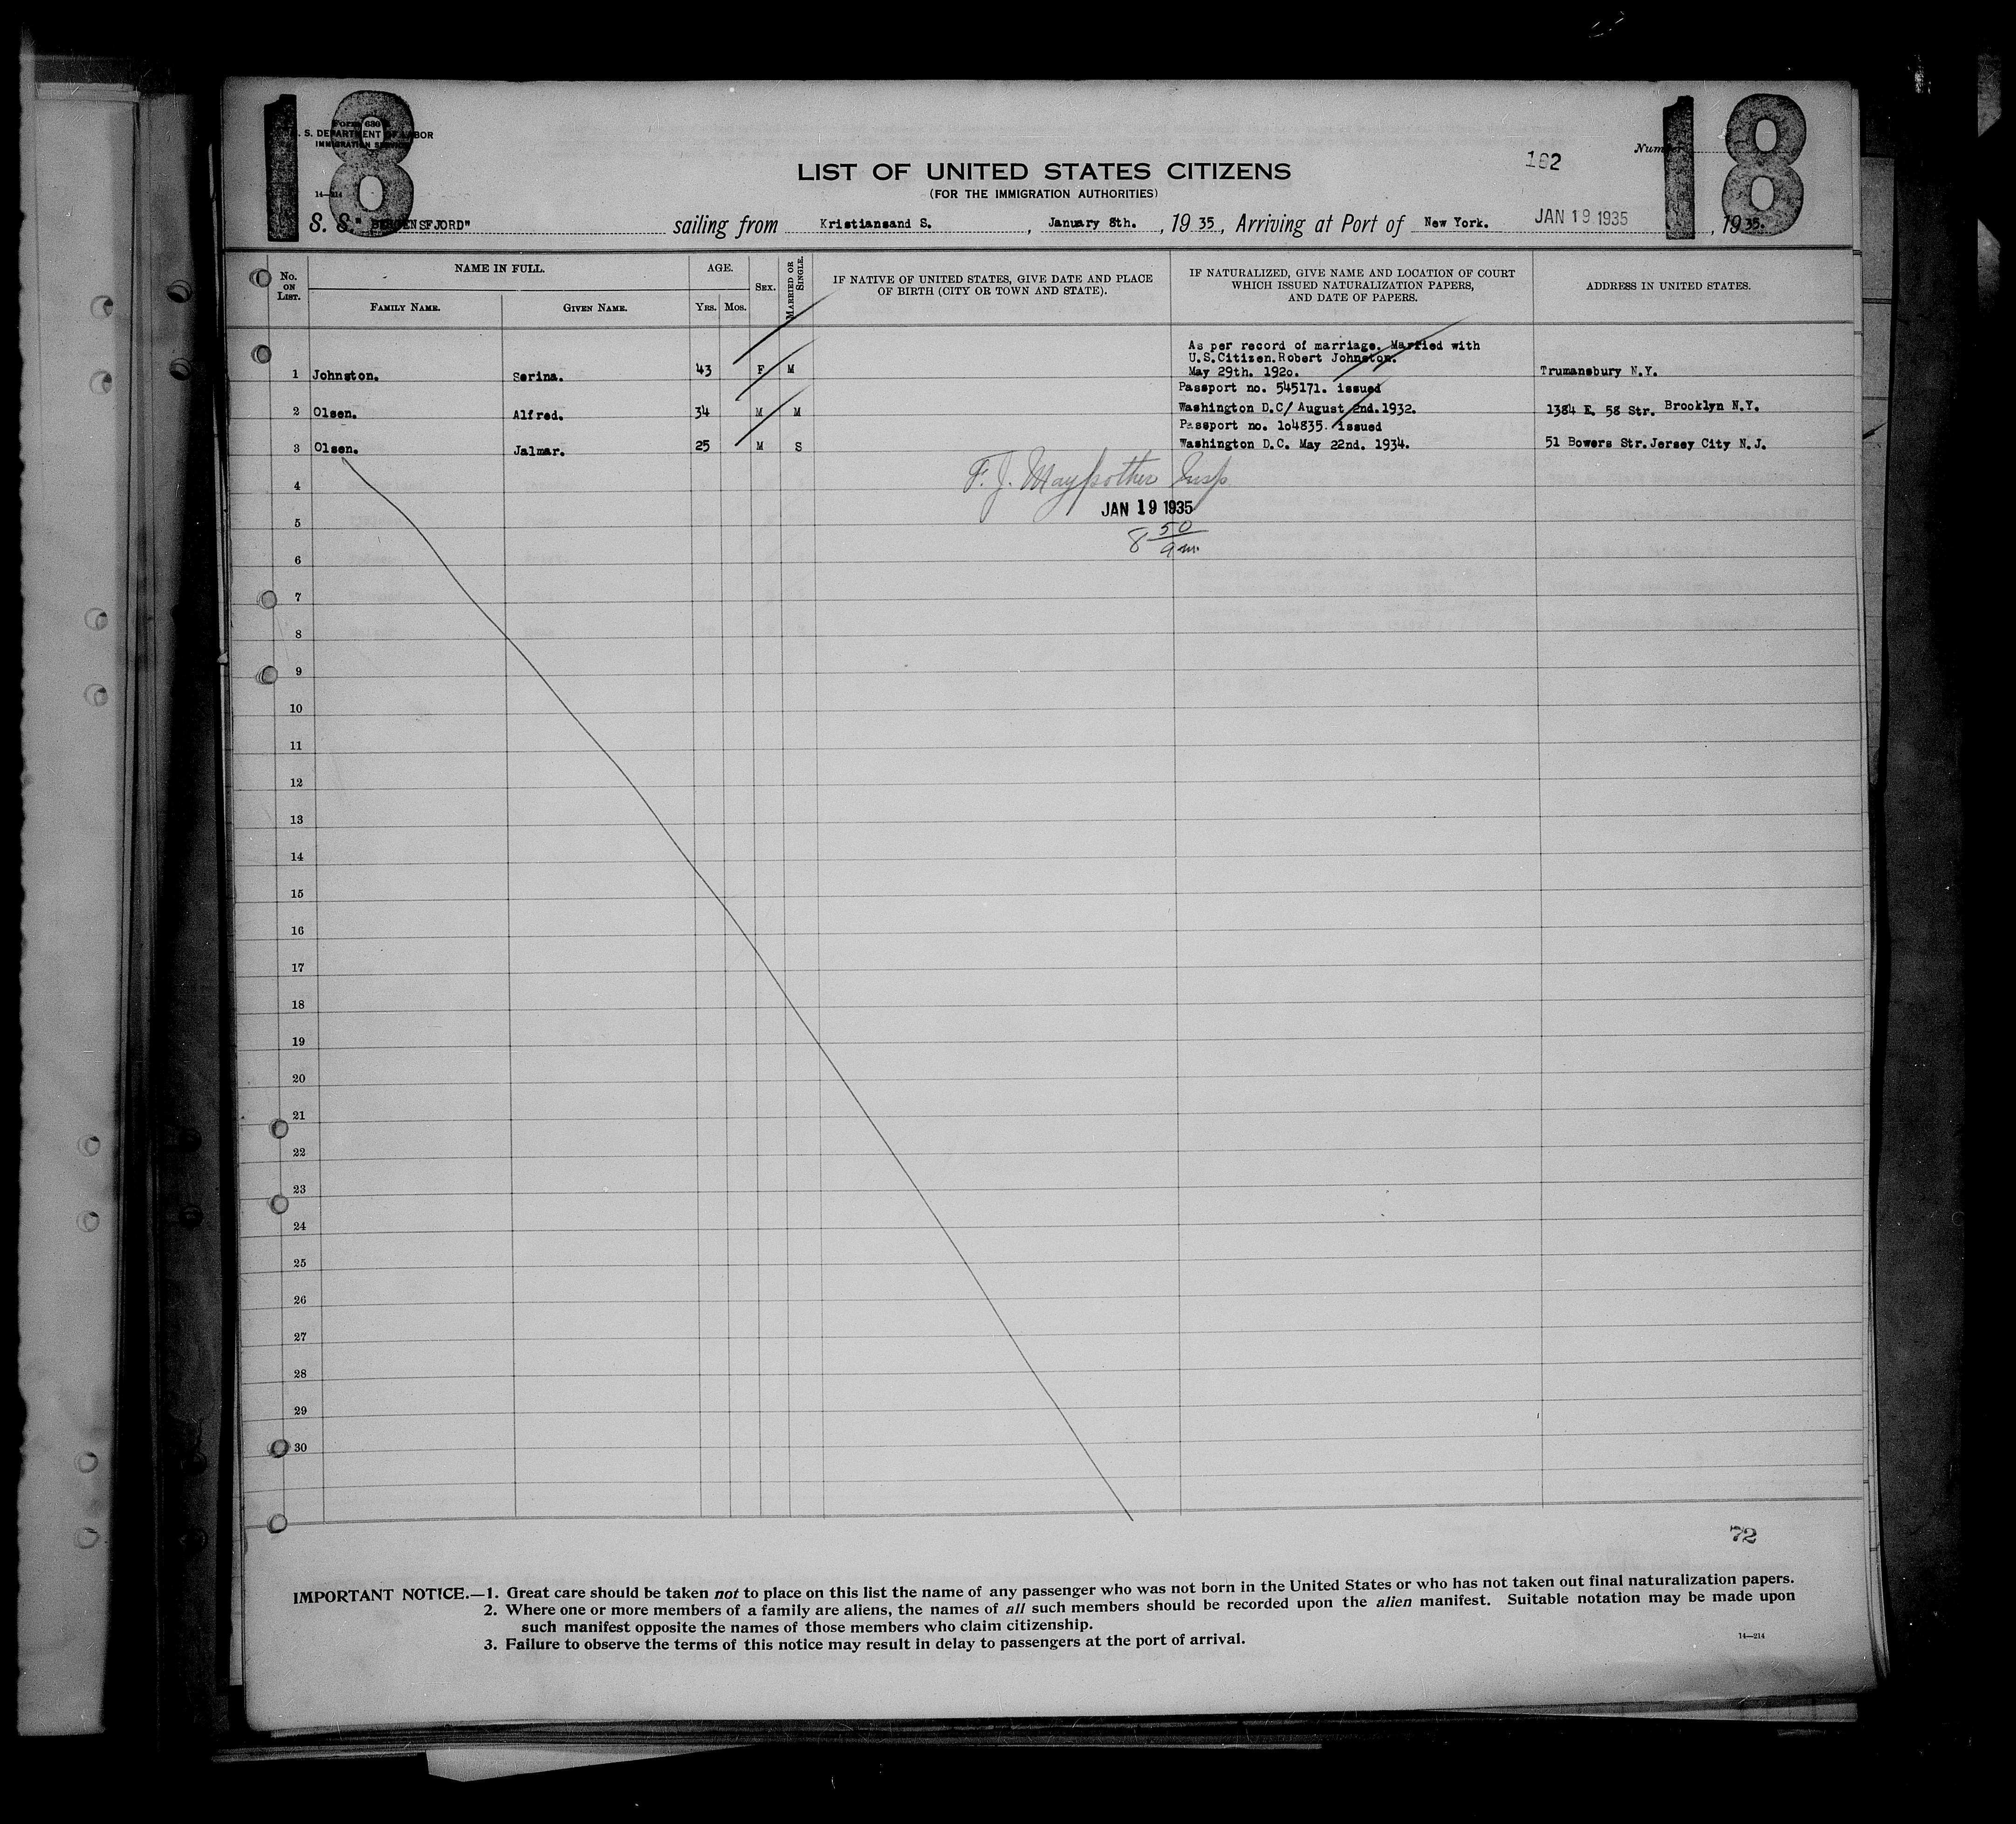 18
18
Form 630
U. S. DEPARTMENT OF LABOR
IMMIGRATION SERVICE
14—214
Number
LIST OF UNITED STATES CITIZENS
(FOR THE IMMIGRATION AUTHORITIES)
S. S. "BERGENSFJORD" sailing from Kristiansand S. , January 8th. , 19 35 , Arriving at Port of New York. JAN 19 1935 , 19 35.
No. ON LIST.
NAME IN FULL.
FAMILY NAME.
GIVEN NAME.
AGE.
YRS.
MOS.
SEX.
MARRIED OR SINGLE.
IF NATIVE OF UNITED STATES, GIVE DATE AND PLACE
OF BIRTH (CITY OR TOWN AND STATE).
IF NATURALIZED, GIVE NAME AND LOCATION OF COURT
WHICH ISSUED NATURALIZATION PAPERS,
AND DATE OF PAPERS.
ADDRESS IN UNITED STATES.
As per record of marriage. Married with
U.S.Citizen.Robert Johnston.
1 Johnston. Serina. 43 F M May 29th. 1920. Trumansbury N.Y.
Passport no. 545171. issued
2 Olsen. Alfred. 34 M M Washington D.C/ August 2nd.1932. 1384 E. 58 Str. Brooklyn N.Y.
Passport no. 104835. issued
3 Olsen. Jalmar. 25 M S Washington D.C. May 22nd. 1934. 51 Bowers Str.Jersey City N.J.
4
F. J. Insp
JAN 19 1935
5
8 50 am.
6
7
8
9
10
11
12
13
14
15
16
17
18
19
20
21
22
23
24
25
26
27
28
29
30
72
IMPORTANT NOTICE.—1. Great care should be taken not to place on this list the name of any passenger who was not born in the United States or who has not taken out final naturalization papers.
2. Where one or more members of a family are aliens, the names of all such members should be recorded upon the alien manifest. Suitable notation may be made upon
such manifest opposite the names of those members who claim citizenship.
3. Failure to observe the terms of this notice may result in delay to passengers at the port of arrival.
14—214